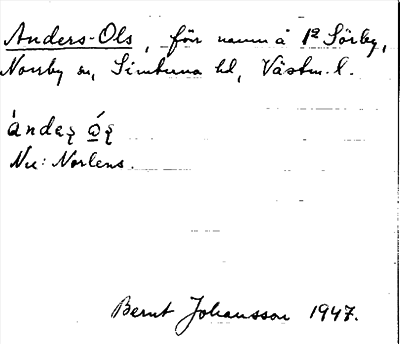 Anders-Ols, förr namn å 1/2 Sörby,
Norrby sn, Simtuna hd, Västm. l.
Nu: Norlens.
Bernt Johansson 1947.